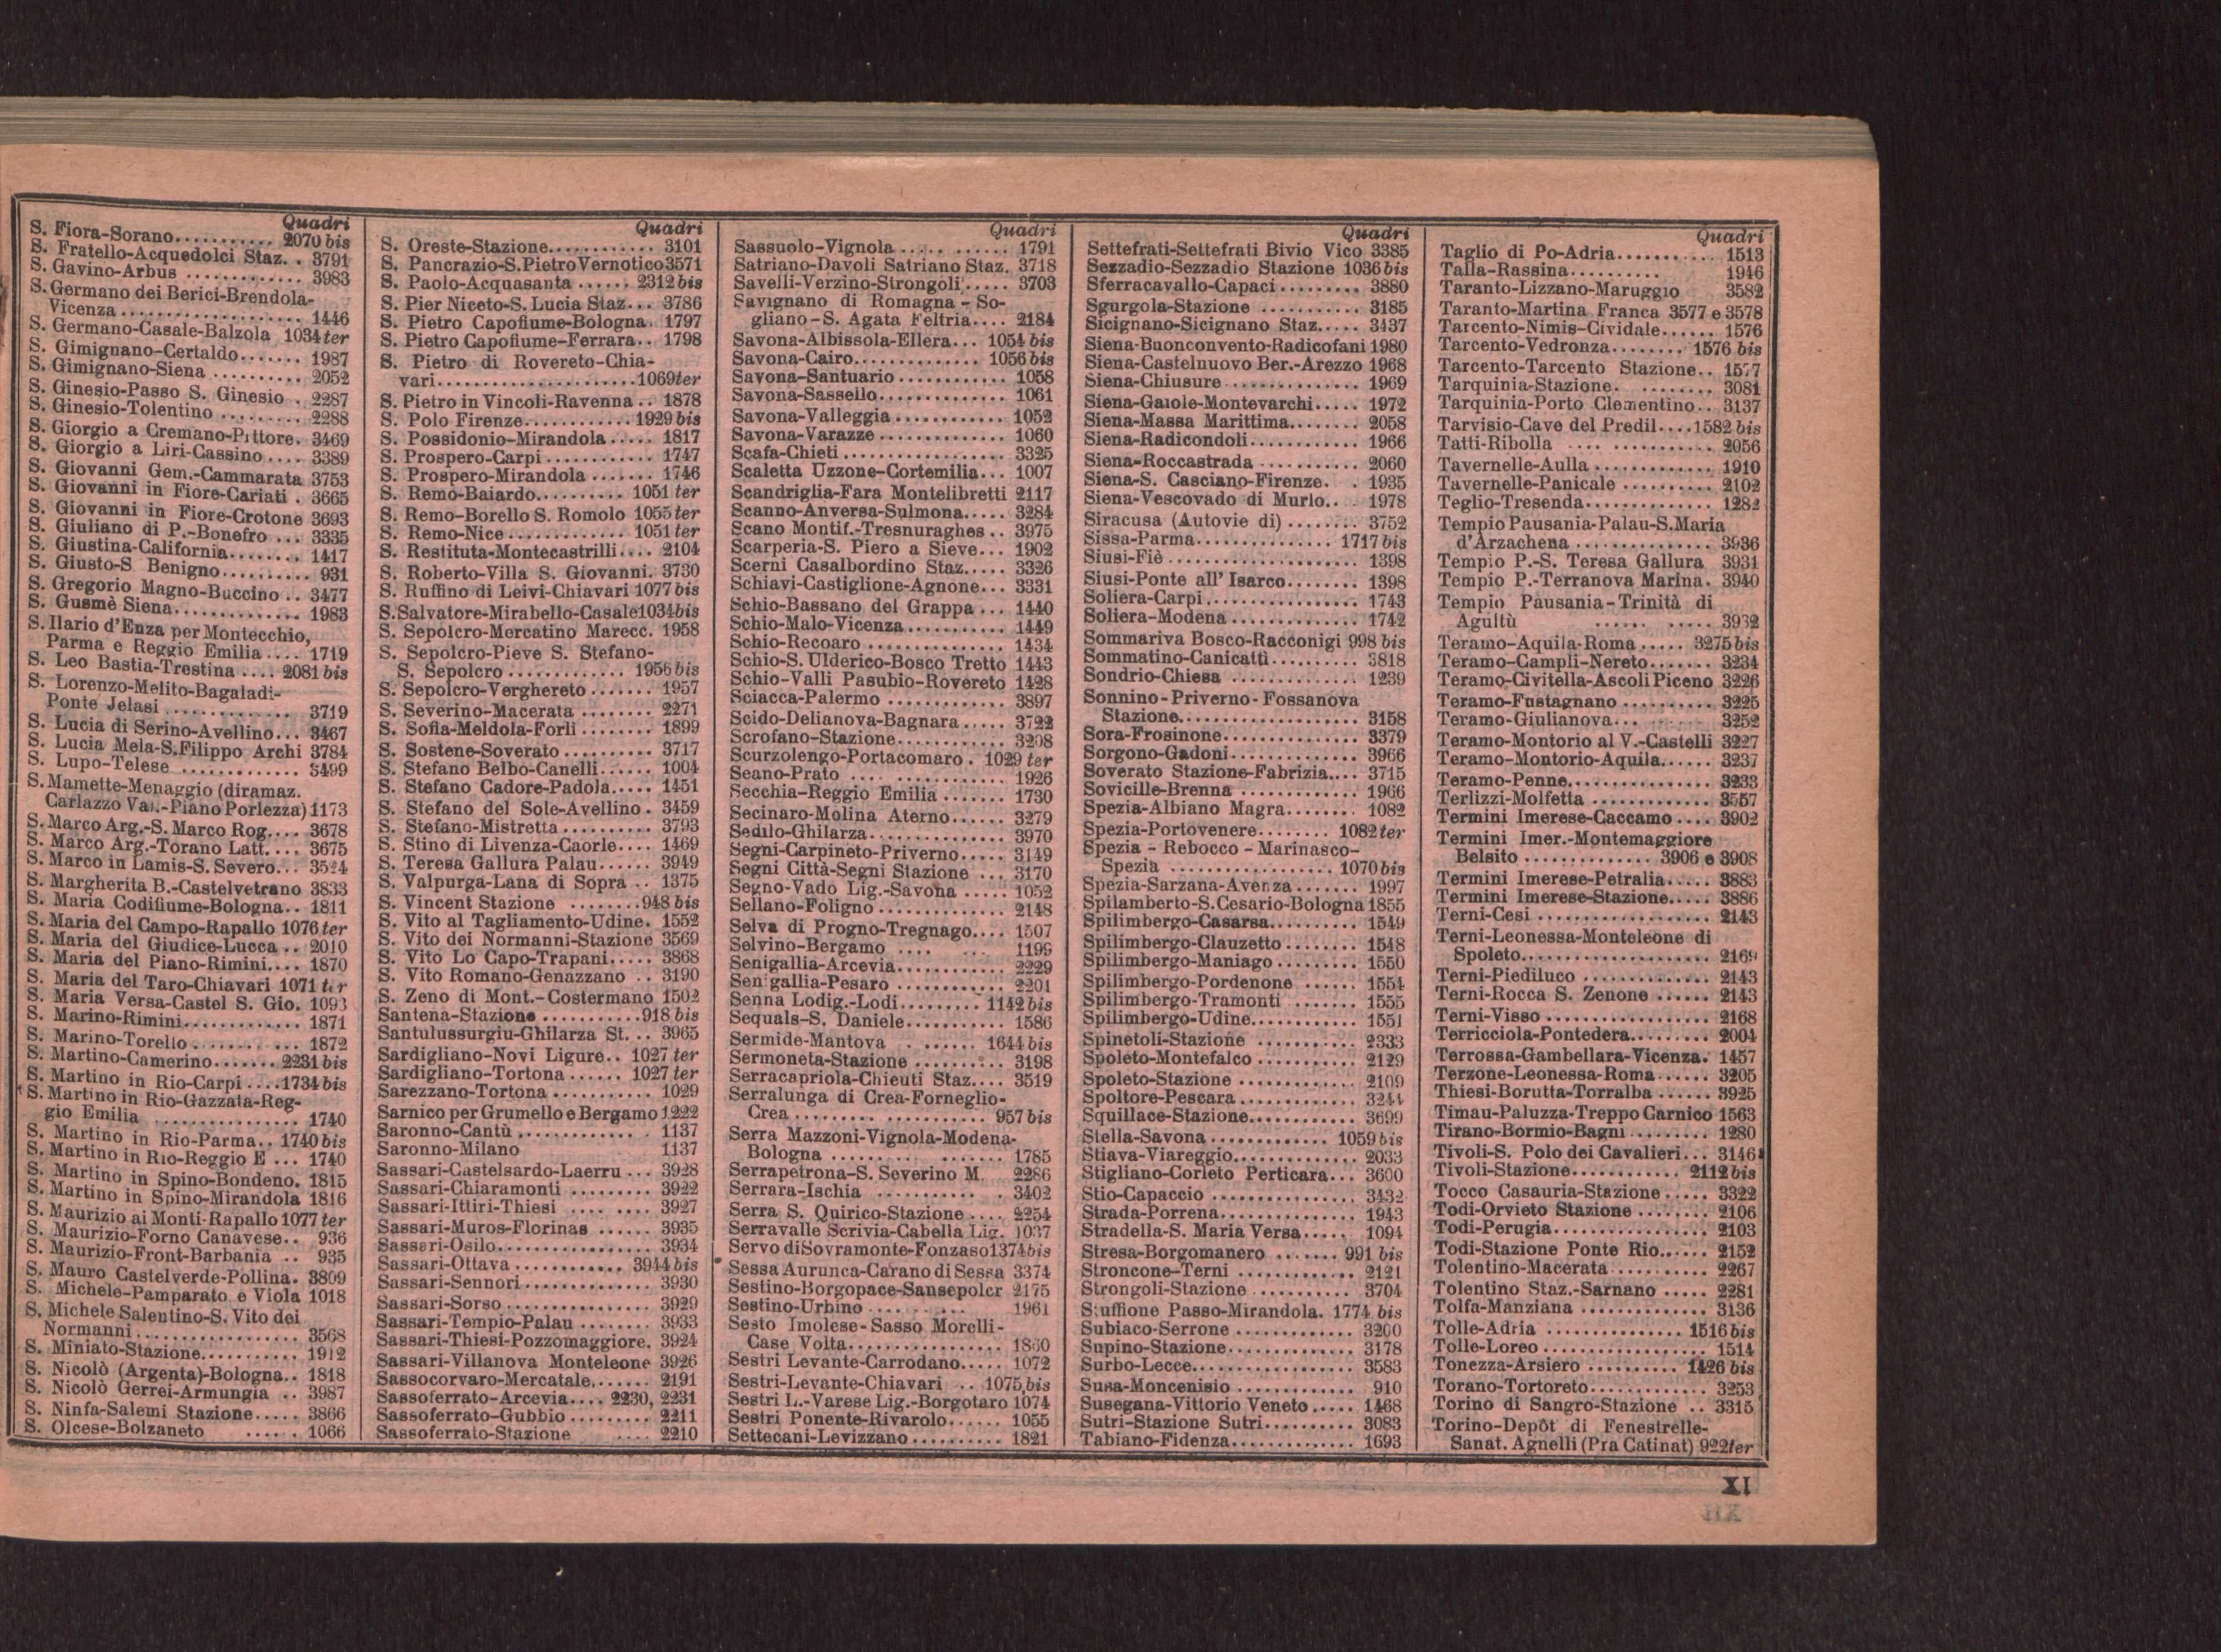 Quadri
S. Fiora-Sorano........... 2070 bis
S. Fratello-Acquedolci Staz. . 3791
S. Gavino-Arbus ............ 3983
S. Germano dei Berici-Brendola-
Vicenza .................... 1446
S. Germano-Casale-Balzola 1034 ter
S. Gimignano-Certaldo....... 1987
S. Gimignano-Siena .......... 2052
S. Ginesio-Passo S. Ginesio . 2287
S. Ginesio-Tolentino ........ 2288
S. Giorgio a Cremano-Pittore. 3469
S. Giorgio a Liri-Cassino .... 3389
S. Giovanni Gem.-Cammarata 3753
S. Giovanni in Fiore-Cariati . 3665
S. Giovanni in Fiore-Crotone 3693
S. Giuliano di P.-Bonefro ... 3335
S. Giustina-California........ 1417
S. Giusto-S. Benigno.......... 931
S. Gregorio Magno-Buccino .. 3477
S. Gusmè Siena.............. 1983
S. Ilario d'Enza per Montecchio,
Parma e Reggio Emilia .... 1719
S. Leo Bastia-Trestina .... 2081 bis
S. Lorenzo-Melito-Bagaladi-
Ponte Jelasi .............. 3719
S. Lucia di Serino-Avellino... 3467
S. Lucia Mela-S. Filippo Archi 3784
S. Lupo-Telese ............. 3499
S. Mamette-Menaggio (diramaz.
Carlazzo Val.-Piano Porlezza) 1173
S. Marco Arg.-S. Marco Rog.... 3678
S. Marco Arg.-Torano Latt.... 3675
S. Marco in Lamis-S. Severo... 3524
S. Margherita B.-Castelvetrano 3833
S. Maria Codifiume-Bologna.. 1811
S. Maria del Campo-Rapallo 1076 ter
S. Maria del Giudice-Lucca .. 2010
S. Maria del Piano-Rimini.... 1870
S. Maria del Taro-Chiavari 1071 ter
S. Maria Versa-Castel S. Gio. 1093
S. Marino-Rimini............. 1871
S. Marino-Torello ........... 1872
S. Martino-Camerino....... 2231 bis
S. Martino in Rio-Carpi ....1734 bis
S. Martino in Rio-Gazzata-Reg-
gio Emilia ................ 1740
S. Martino in Rio-Parma.. 1740 bis
S. Martino in Rio-Reggio E ... 1740
S. Martino in Spino-Bondeno. 1815
S. Martino in Spino-Mirandola 1816
S. Maurizio ai Monti-Rapallo 1077 ter
S. Maurizio-Forno Canavese.. 936
S. Maurizio-Front-Barbania .. 935
S. Mauro Castelverde-Pollina. 3809
S. Michele-Pamparato e Viola 1018
S. Michele Salentino-S. Vito dei
Normanni.................. 3568
S. Miniato-Stazione........... 1912
S. Nicolò (Argenta)-Bologna.. 1818
S. Nicolò Gerrei-Armungia .. 3987
S. Ninfa-Salemi Stazione..... 3866
S. Olcese-Bolzaneto ...... 1066
Quadri
S. Oreste-Stazione............ 3101
S. Pancrazio-S. Pietro Vernotico 3571
S. Paolo-Acquasanta ...... 2312 bis
S. Pier Niceto-S. Lucia Staz... 3786
S. Pietro Capofiume-Bologna. 1797
S. Pietro Capofiume-Ferrara.. 1798
S. Pietro di Rovereto-Chia-
vari......................1069 ter
S. Pietro in Vincoli-Ravenna .. 1878
S. Polo Firenze............1929 bis
S. Possidonio-Mirandola ..... 1817
S. Prospero-Carpi ............ 1747
S. Prospero-Mirandola ....... 1746
S. Remo-Baiardo.......... 1051 ter
S. Remo-Borello S. Romolo 1055 ter
S. Remo-Nice............. 1051 ter
S. Restituta-Montecastrilli.... 2104
S. Roberto-Villa S. Giovanni. 3730
S. Ruffino di Leivi-Chiavari 1077 bis
S. Salvatore-Mirabello-Casale 1034 bis
S. Sepolcro-Mercatino Marecc. 1958
S. Sepolcro-Pieve S. Stefano-
S. Sepolcro ............. 1956 bis
S. Sepolcro-Verghereto ....... 1957
S. Severino-Macerata ........ 2271
S. Sofia-Meldola-Forlì ........ 1899
S. Sostene-Soverato .......... 3717
S. Stefano Belbo-Canelli...... 1004
S. Stefano Cadore-Padola..... 1451
S. Stefano del Sole-Avellino . 3459
S. Stefano-Mistretta .......... 3793
S. Stino di Livenza-Caorle.... 1469
S. Teresa Gallura Palau...... 3949
S. Valpurga-Lana di Sopra .. 1375
S. Vincent Stazione ........948 bis
S. Vito al Tagliamento-Udine. 1552
S. Vito dei Normanni-Stazione 3569
S. Vito Lo Capo-Trapani..... 3868
S. Vito Romano-Genazzano .. 3190
S. Zeno di Mont.-Costermano 1502
Santena-Stazione ...........918 bis
Santulussurgiu-Ghilarza St. .. 3965
Sardigliano-Novi Ligure.. 1027 ter
Sardigliano-Tortona ...... 1027 ter
Sarezzano-Tortona ........... 1029
Sarnico per Grumello e Bergamo 1222
Saronno-Cantù .............. 1137
Saronno-Milano 1137
Sassari-Castelsardo-Laerru ... 3928
Sassari-Chiaramonti ......... 3922
Sassari-Ittiri-Thiesi ......... 3927
Sassari-Muros-Florinas ...... 3935
Sassari-Osilo................. 3934
Sassari-Ottava ............ 3944 bis
Sassari-Sennori .............. 3930
Sassari-Sorso ................ 3929
Sassari-Tempio-Palau ........ 3933
Sassari-Thiesi-Pozzomaggiore. 3924
Sassari-Villanova Monteleone 3926
Sassocorvaro-Mercatale....... 2191
Sassoferrato-Arcevia.... 2230, 2231
Sassoferrato-Gubbio ......... 2211
Sassoferrato-Stazione .... 2210
Quadri
Sassuolo-Vignola ............ 1791
Satriano-Davoli Satriano Staz. 3718
Savelli-Verzino-Strongoli...... 3703
Savignano di Romagna - So-
gliano-S. Agata Feltria.... 2184
Savona-Albissola-Ellera... 1054 bis
Savona-Cairo.............. 1056 bis
Savona-Santuario ............ 1058
Savona-Sassello.............. 1061
Savona-Valleggia............. 1052
Savona-Varazze .............. 1060
Scafa-Chieti .................. 3325
Scaletta Uzzone-Cortemilia... 1007
Scandriglia-Fara Montelibretti 2117
Scanno-Anversa-Sulmona..... 3284
Scano Montif.-Tresnuraghes .. 3975
Scarperia-S. Piero a Sieve... 1902
Scerni Casalbordino Staz..... 3326
Schiavi-Castiglione-Agnone... 3331
Schio-Bassano del Grappa ... 1440
Schio-Malo-Vicenza........... 1449
Schio-Recoaro ................ 1434
Schio-S. Ulderico-Bosco Tretto 1443
Schio-Valli Pasubio-Rovereto 1428
Sciacca-Palermo ............. 3897
Scido-Delianova-Bagnara..... 3722
Scrofano-Stazione............ 3208
Scurzolengo-Portacomaro . 1029 ter
Seano-Prato ................. 1926
Secchia-Reggio Emilia ....... 1730
Secinaro-Molina Aterno...... 3279
Sedilo-Ghilarza............... 3970
Segni-Carpineto-Priverno..... 3149
Segni Città-Segni Stazione ... 3170
Segno-Vado Lig.-Savona ..... 1052
Sellano-Foligno .............. 2148
Selva di Progno-Tregnago.... 1507
Selvino-Bergamo .... ... 1199
Senigallia-Arcevia............ 2229
Senigallia-Pesaro ............ 2201
Senna Lodig.-Lodi......... 1142 bis
Sequals-S. Daniele........... 1586
Sermide-Mantova ........ 1644 bis
Sermoneta-Stazione .......... 3198
Serracapriola-Chieuti Staz.... 3519
Serralunga di Crea-Forneglio-
Crea ...................... 957 bis
Serra Mazzoni-Vignola-Modena-
Bologna ................... 1785
Serrapetrona-S. Severino M. 2286
Serrara-Ischia ............. 3402
Serra S. Quirico-Stazione .... 2254
Serravalle Scrivia-Cabella Lig. 1037
Servo di Sovramonte-Fonzaso 1374 bis
Sessa Aurunca-Carano di Sessa 3374
Sestino-Borgopace-Sansepolcr 2175
Sestino-Urbino ............ 1961
Sesto Imolese-Sasso Morelli-
Case Volta................. 1860
Sestri Levante-Carrodano..... 1072
Sestri-Levante-Chiavari .. 1075 bis
Sestri L.-Varese Lig.-Borgotaro 1074
Sestri Ponente-Rivarolo...... 1055
Settecani-Levizzano .......... 1821
Quadri
Settefrati-Settefrati Bivio Vico 3385
Sezzadio-Sezzadio Stazione 1036 bis
Sferracavallo-Capaci ......... 3880
Sgurgola-Stazione ........... 3185
Sicignano-Sicignano Staz..... 3437
Siena-Buonconvento-Radicofani 1980
Siena-Castelnuovo Ber.-Arezzo 1968
Siena-Chiusure............... 1969
Siena-Gaiole-Montevarchi..... 1972
Siena-Massa Marittima....... 2058
Siena-Radicondoli............ 1966
Siena-Roccastrada ........... 2060
Siena-S. Casciano-Firenze. . 1935
Siena-Vescovado di Murlo.. . 1978
Siracusa (Autovie di) ........ 3752
Sissa-Parma............... 1717 bis
Siusi-Fiè ..................... 1398
Siusi-Ponte all' Isarco........ 1398
Soliera-Carpi................. 1743
Soliera-Modena .............. 1742
Sommariva Bosco-Racconigi 998 bis
Sommatino-Canicattì.......... 3818
Sondrio-Chiesa .............. 1239
Sonnino-Priverno-Fossanova
Stazione................... 3158
Sora-Frosinone............... 3379
Sorgono-Gadoni.............. 3966
Soverato Stazione-Fabrizia.... 3715
Sovicille-Brenna ............. 1966
Spezia-Albiano Magra........ 1082
Spezia-Portovenere........ 1082 ter
Spezia - Rebocco - Marinasco-
Spezia ................. 1070 bis
Spezia-Sarzana-Avenza ....... 1997
Spilamberto-S. Cesario-Bologna 1855
Spilimbergo-Casarsa.......... 1549
Spilimbergo-Clauzetto ........ 1548
Spilimbergo-Maniago ......... 1550
Spilimbergo-Pordenone ...... 1554
Spilimbergo-Tramonti ....... 1555
Spilimbergo-Udine........... 1551
Spinetoli-Stazione ........... 2333
Spoleto-Montefalco .......... 2129
Spoleto-Stazione ............ 2109
Spoltore-Pescara............. 3244
Squillace-Stazione............ 3699
Stella-Savona ............ 1059 bis
Stiava-Viareggio............. 2033
Stigliano-Corleto Perticara... 3600
Stio-Capaccio ............... 3432
Strada-Porrena............... 1943
Stradella-S. Maria Versa..... 1094
Stresa-Borgomanero ....... 991 bis
Stroncone-Terni ............. 2121
Strongoli-Stazione ........... 3704
Stuffione Passo-Mirandola. 1774 bis
Subiaco-Serrone ............. 3200
Supino-Stazione.............. 3178
Surbo-Lecce.................. 3583
Susa-Moncenisio ............. 910
Susegana-Vittorio Veneto ..... 1468
Sutri-Stazione Sutri.......... 3083
Tabiano-Fidenza.............. 1693
Quadri
Taglio di Po-Adria........... 1513
Talla-Rassina.......... 1946
Taranto-Lizzano-Maruggio 3582
Taranto-Martina Franca 3577 e 3578
Tarcento-Nimis-Cividale...... 1576
Tarcento-Vedronza........ 1576 bis
Tarcento-Tarcento Stazione.. 1577
Tarquinia-Stazione. ....... 3081
Tarquinia-Porto Clementino.. 3137
Tarvisio-Cave del Predil....1582 bis
Tatti-Ribolla ............... 2056
Tavernelle-Aulla ............. 1910
Tavernelle-Panicale .......... 2102
Teglio-Tresenda.............. 1282
Tempio Pausania-Palau-S. Maria
d'Arzachena ............... 3936
Tempio P.-S. Teresa Gallura 3931
Tempio P.-Terranova Marina. 3940
Tempio Pausania-Trinità di
Agultù ...... ..... 3932
Teramo-Aquila-Roma ..... 3275 bis
Teramo-Campli-Nereto....... 3234
Teramo-Civitella-Ascoli Piceno 3226
Teramo-Fustagnano .......... 3225
Teramo-Giulianova... ..... 3252
Teramo-Montorio al V.-Castelli 3227
Teramo-Montorio-Aquila...... 3237
Teramo-Penne................ 3233
Terlizzi-Molfetta ............. 3557
Termini Imerese-Caccamo .... 3902
Termini Imer.-Montemaggiore
Belsito .............. 3906 e 3908
Termini Imerese-Petralia..... 3883
Termini Imerese-Stazione..... 3886
Terni-Cesi ................... 2143
Terni-Leonessa-Monteleone di
Spoleto.................... 2169
Terni-Piediluco .............. 2143
Terni-Rocca S. Zenone ...... 2143
Terni-Visso .................. 2168
Terricciola-Pontedera......... 2004
Terrossa-Gambellara-Vicenza. 1457
Terzone-Leonessa-Roma ...... 3205
Thiesi-Borutta-Torralba ...... 3925
Timau-Paluzza-Treppo Carnico 1563
Tirano-Bormio-Bagni ......... 1280
Tivoli-S. Polo dei Cavalieri... 3146
Tivoli-Stazione............ 2112 bis
Tocco Casauria-Stazione ..... 3322
Todi-Orvieto Stazione ........ 2106
Todi-Perugia................. 2103
Todi-Stazione Ponte Rio...... 2152
Tolentino-Macerata .......... 2267
Tolentino Staz.-Sarnano ..... 2281
Tolfa-Manziana .............. 3136
Tolle-Adria ............... 1516 bis
Tolle-Loreo .................. 1514
Tonezza-Arsiero .......... 1426 bis
Torano-Tortoreto............. 3253
Torino di Sangro-Stazione .. 3315
Torino-Depôt di Fenestrelle-
Sanat. Agnelli (Pra Catinat) 922 ter
XI